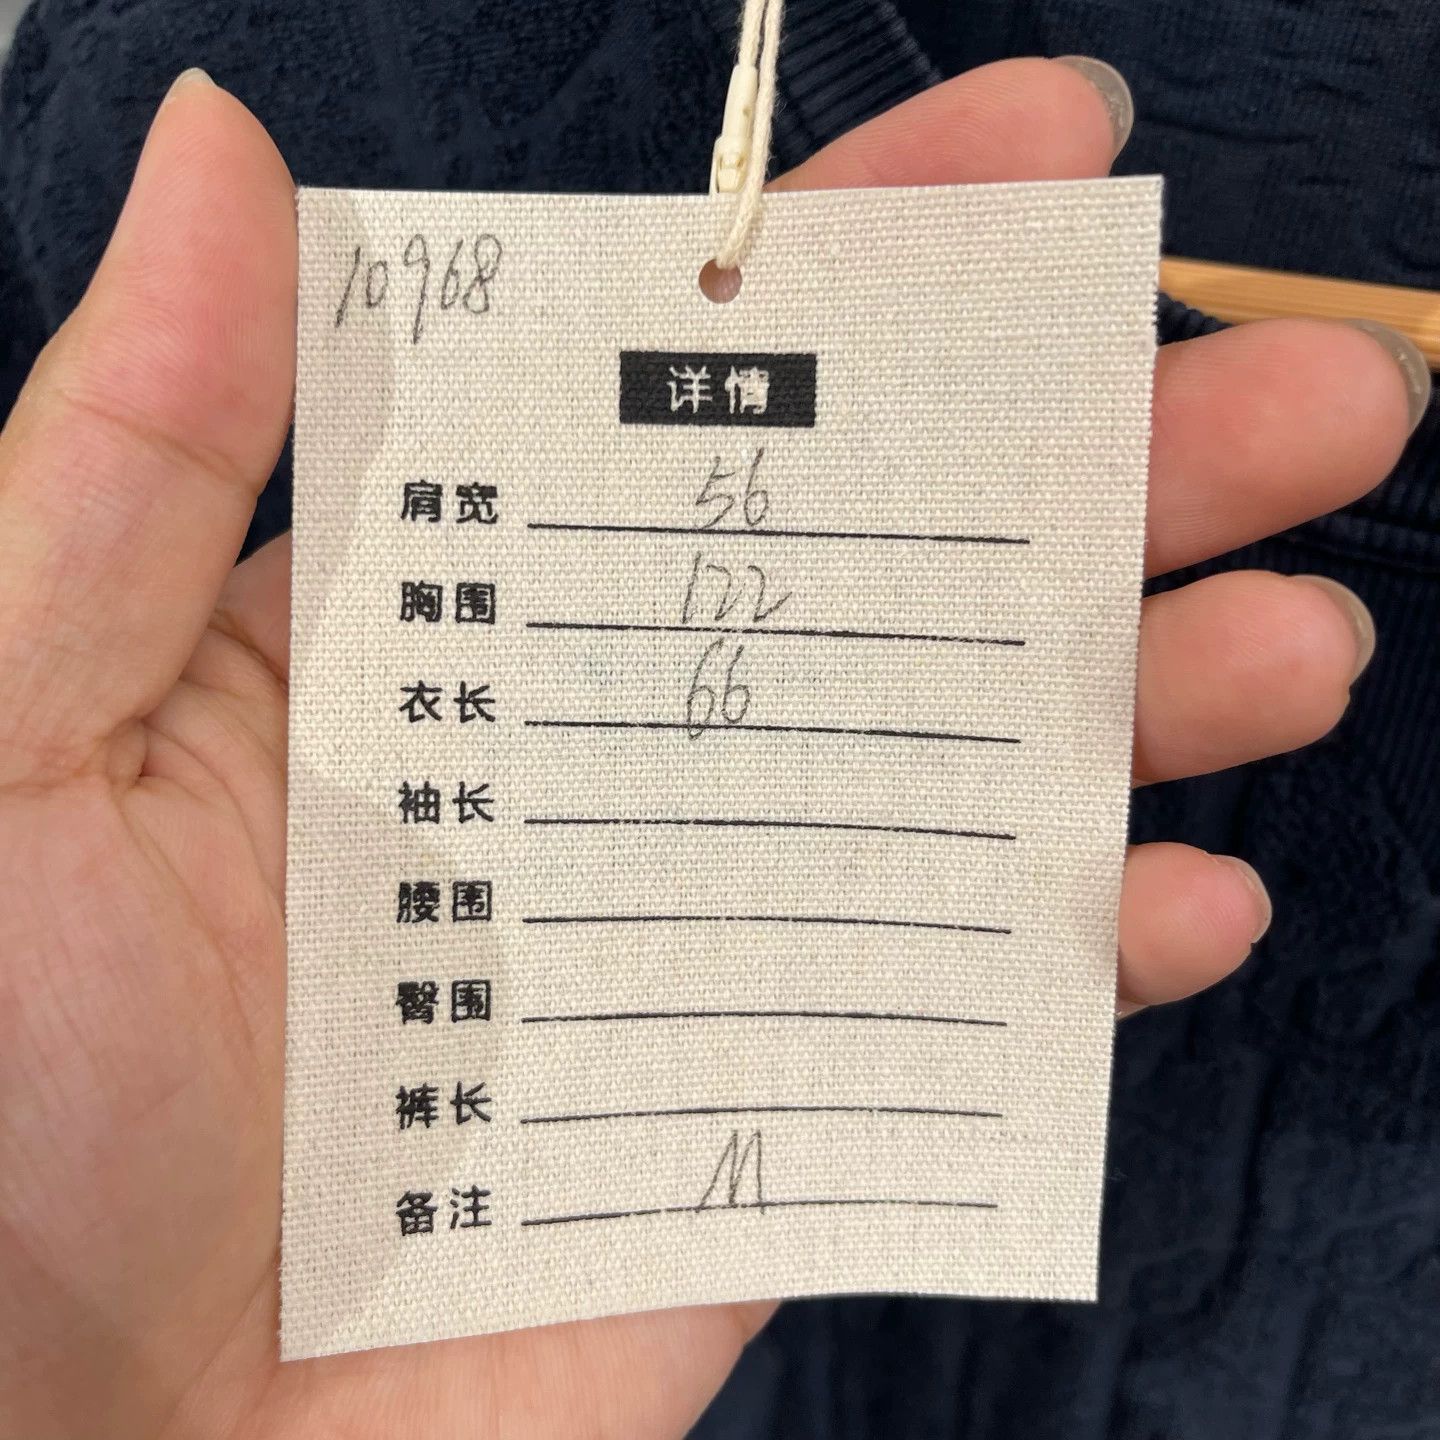 10968
详情
肩宽 56
胸围 122
衣长 66
袖长
腰围
臀围
裤长
备注 M